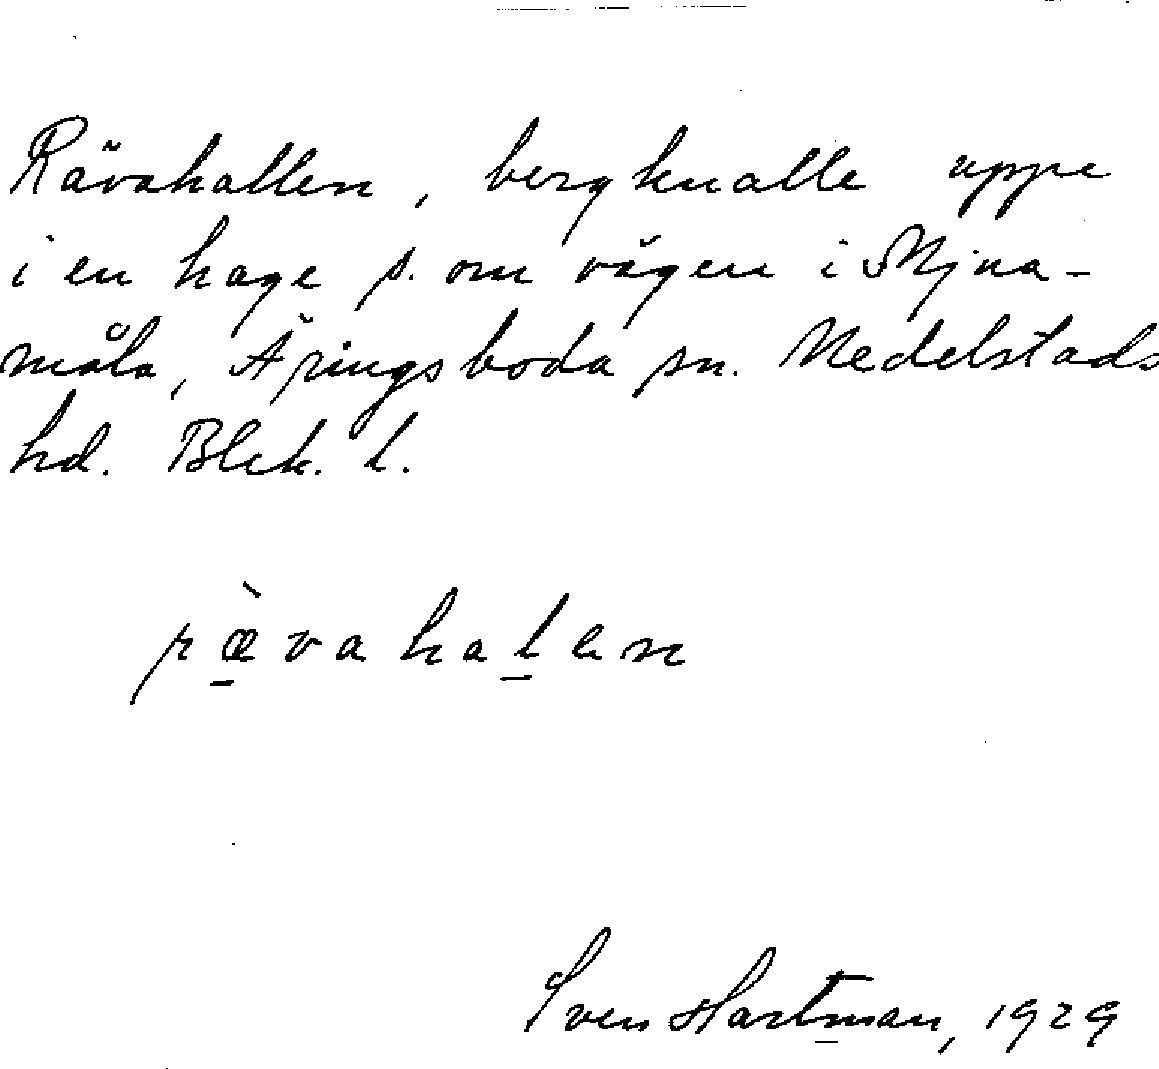 Rävahallen, bergknalle uppe
i en hage s. om vägen i Mjua-
måla, Äringsboda sn. Medelstads
hd. Blek. l.
ræ̀vahalen
Sven Hartman, 1929